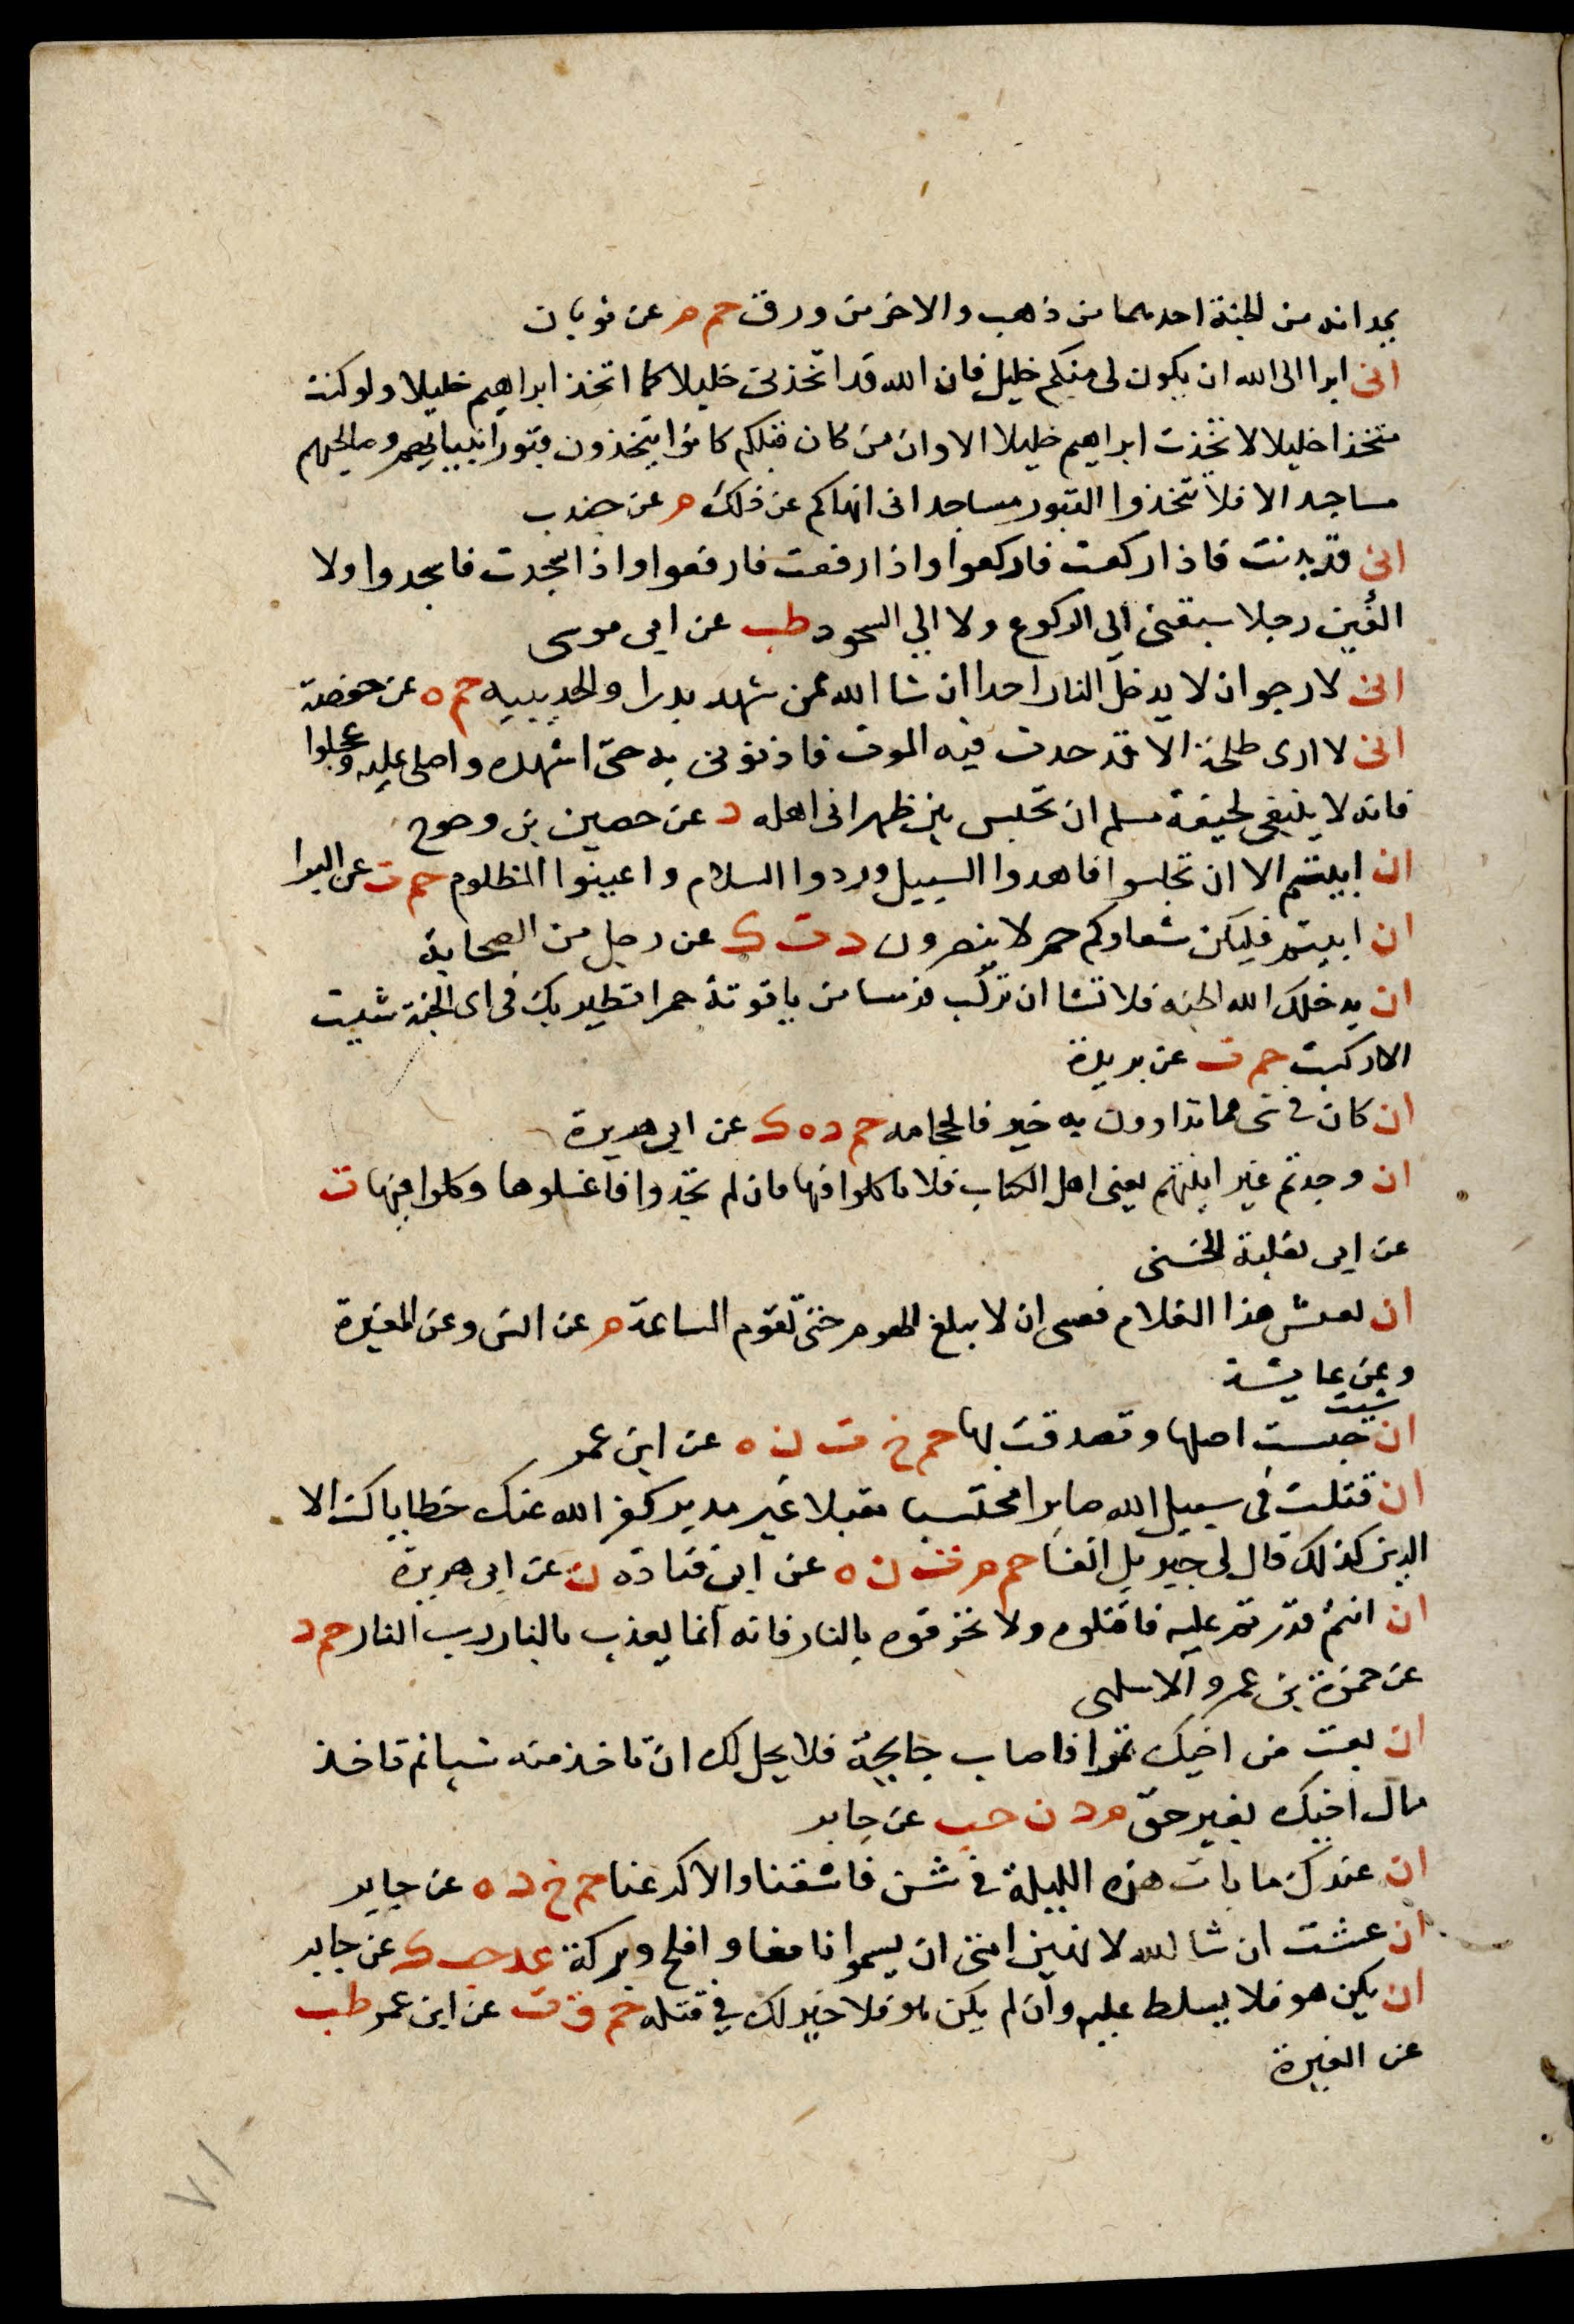 يمدانه من الجنة احدهما من ذهب والاخر من ورق حم م عن ثوبان
انى ابرا الى الله ان يكون لى منكم خليل فان الله قد اتخذنى خليلا كما اتخذ ابراهيم خليلا ولو كنت
متخذا خليلا لاتخذت ابراهيم خليلا الا وان من كان قبلكم كانوا يتخذون قبور انبيايهم وصالحيهم
مساجد الا فلا تتخذوا القبور مساجد انى انهاكم عن ذلك م عن جندب
انى قد بدنت فاذا ركعت فاركعوا واذا رفعت فارفعوا واذا سجدت فاسجدوا ولا
الفين رجلا سبقنى الى الركوع ولا الي السجود طب عن ابى موسى
انى لارجو ان لا يدخل النار احد ان شا الله ممن شهد بدرا والحديبيه حم ه عن حفصة
انى لا ارى طلحة الا قد حدث فيه الموت فاذنونى به حتى اشهده واصلى عليه وعجلوا
فانه لا ينبغى لجيفة مسلم ان تحبس بين ظهرانى اهله د عن حصين بن وحوح
ان ابيتم الا ان تجلسوا فاهدوا السبيل وردوا السلام واعينوا المظلوم حم ت عن البرا
ان ابيتم فليكن شعاركم حم لا ينصرون د ت ك عن رجل من الصحابة
ان يدخلك الله الجنه فلا تشا ان تركب فرسا من ياقوتة حمرا تطير بك فى اى الجنة شيت
الا ركبت حم ت عن بريدة
ان كان فى شى مما تداوون به خير فالحجامه حم د ه ك عن ابى هريرة
ان وجدتم غير انيتهم يعنى اهل الكتاب فلا تاكلوا فيها فان لم تجدوا فاغسلوها وكلوا فيها ت
عن ابى ثعلبة الخشنى
ان يعش هذا الغلام فعسى ان لا يبلغ الهرم حتى تقوم الساعة م عن انس وعن المغيرة
وعن عايشة
ان شيت حبست اصلها وتصدقت بها حم خ ت ن ه عن ابن عمر
ان قتلت فى سبيل الله صابرا محتسبا مقبلا غير مدبر كفر الله عنك خطاياك الا
الدين كذلك قال لى جبريل انفا حم م ت ن ه عن ابى قتادة ن عن ابى هريرة
ان انتم قدرتم عليه فاقتلوه ولا تحرقوه بالنار فانه انما يعذب بالنار رب النار حم د
عن حمزة بن عمرو الاسلمى
ان بعت من اخيك تمرا فاصاب جايحة فلا يحل لك ان تاخذ منه شيا بم تاخذ
مال اخيك بغير حق م د ن حب عن جابر
ان عندك ما بات هذه الليلة فى شن فاسقنا والا كرعنا حم خ د ه عن جابر
ان عشت ان شا الله لانهين امتى ان يسموا نافعا وافلح وبركة عد حب ك عن جابر
ان يكن هو فلا يسلط عليه وان لم يكن هو فلا خير لك فى قتله حم ق ت عن ابن عمر طب
عن المغيرة
٧١